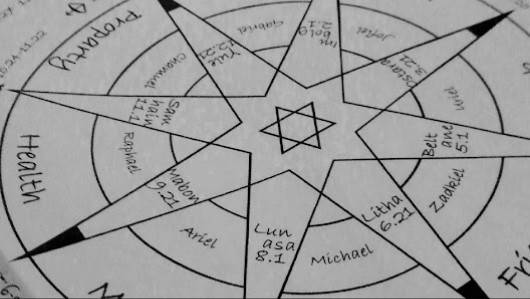 Property
Gabriel
Im
bolg
2.1
Jofiel
Chamuel
Yule
12.21
Ostara
3.21
Uriel
Sam
hain
11.1
Belt
ane
5.1
Health
Raphael
Mabon
9.21
Zadkiel
Litha
6.21
Ariel
Lun
asa
8.1
Michael